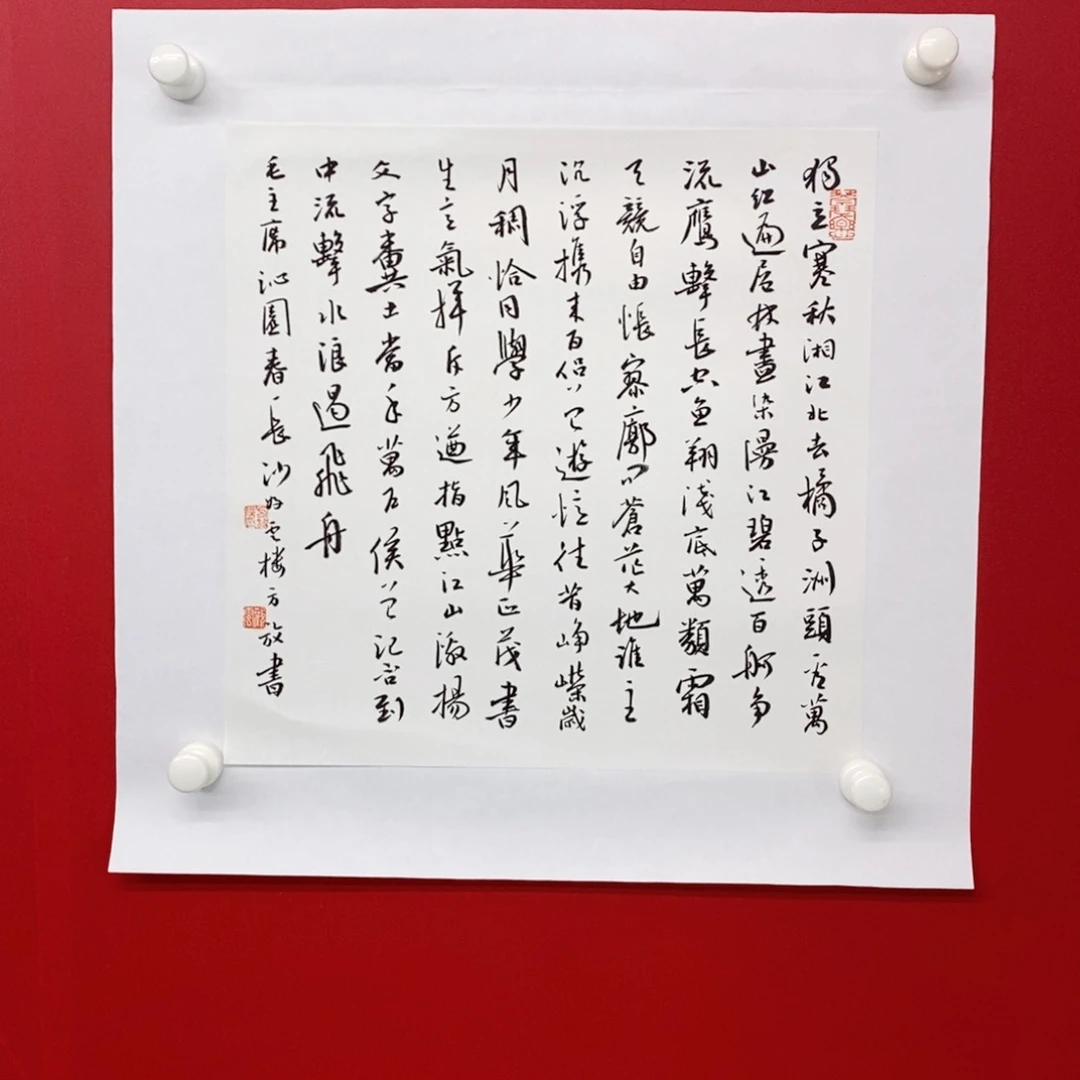 獨立寒秋湘江北去橘子洲頭看萬
山红遍层林盡染漫江碧透百舸争
流鹰擊長空鱼翔淺底萬類霜
天競自由悵寥廓问蒼茫大地谁主
沉浮携来百侣曾遊憶往昔峥嵘歲
月稠恰同學少年风華正茂書
生意氣揮斥方遒指點江山激揚
文字糞土當年萬户侯曾记否到
中流擊水浪遏飛舟
毛主席沁園春長沙 楼方放書